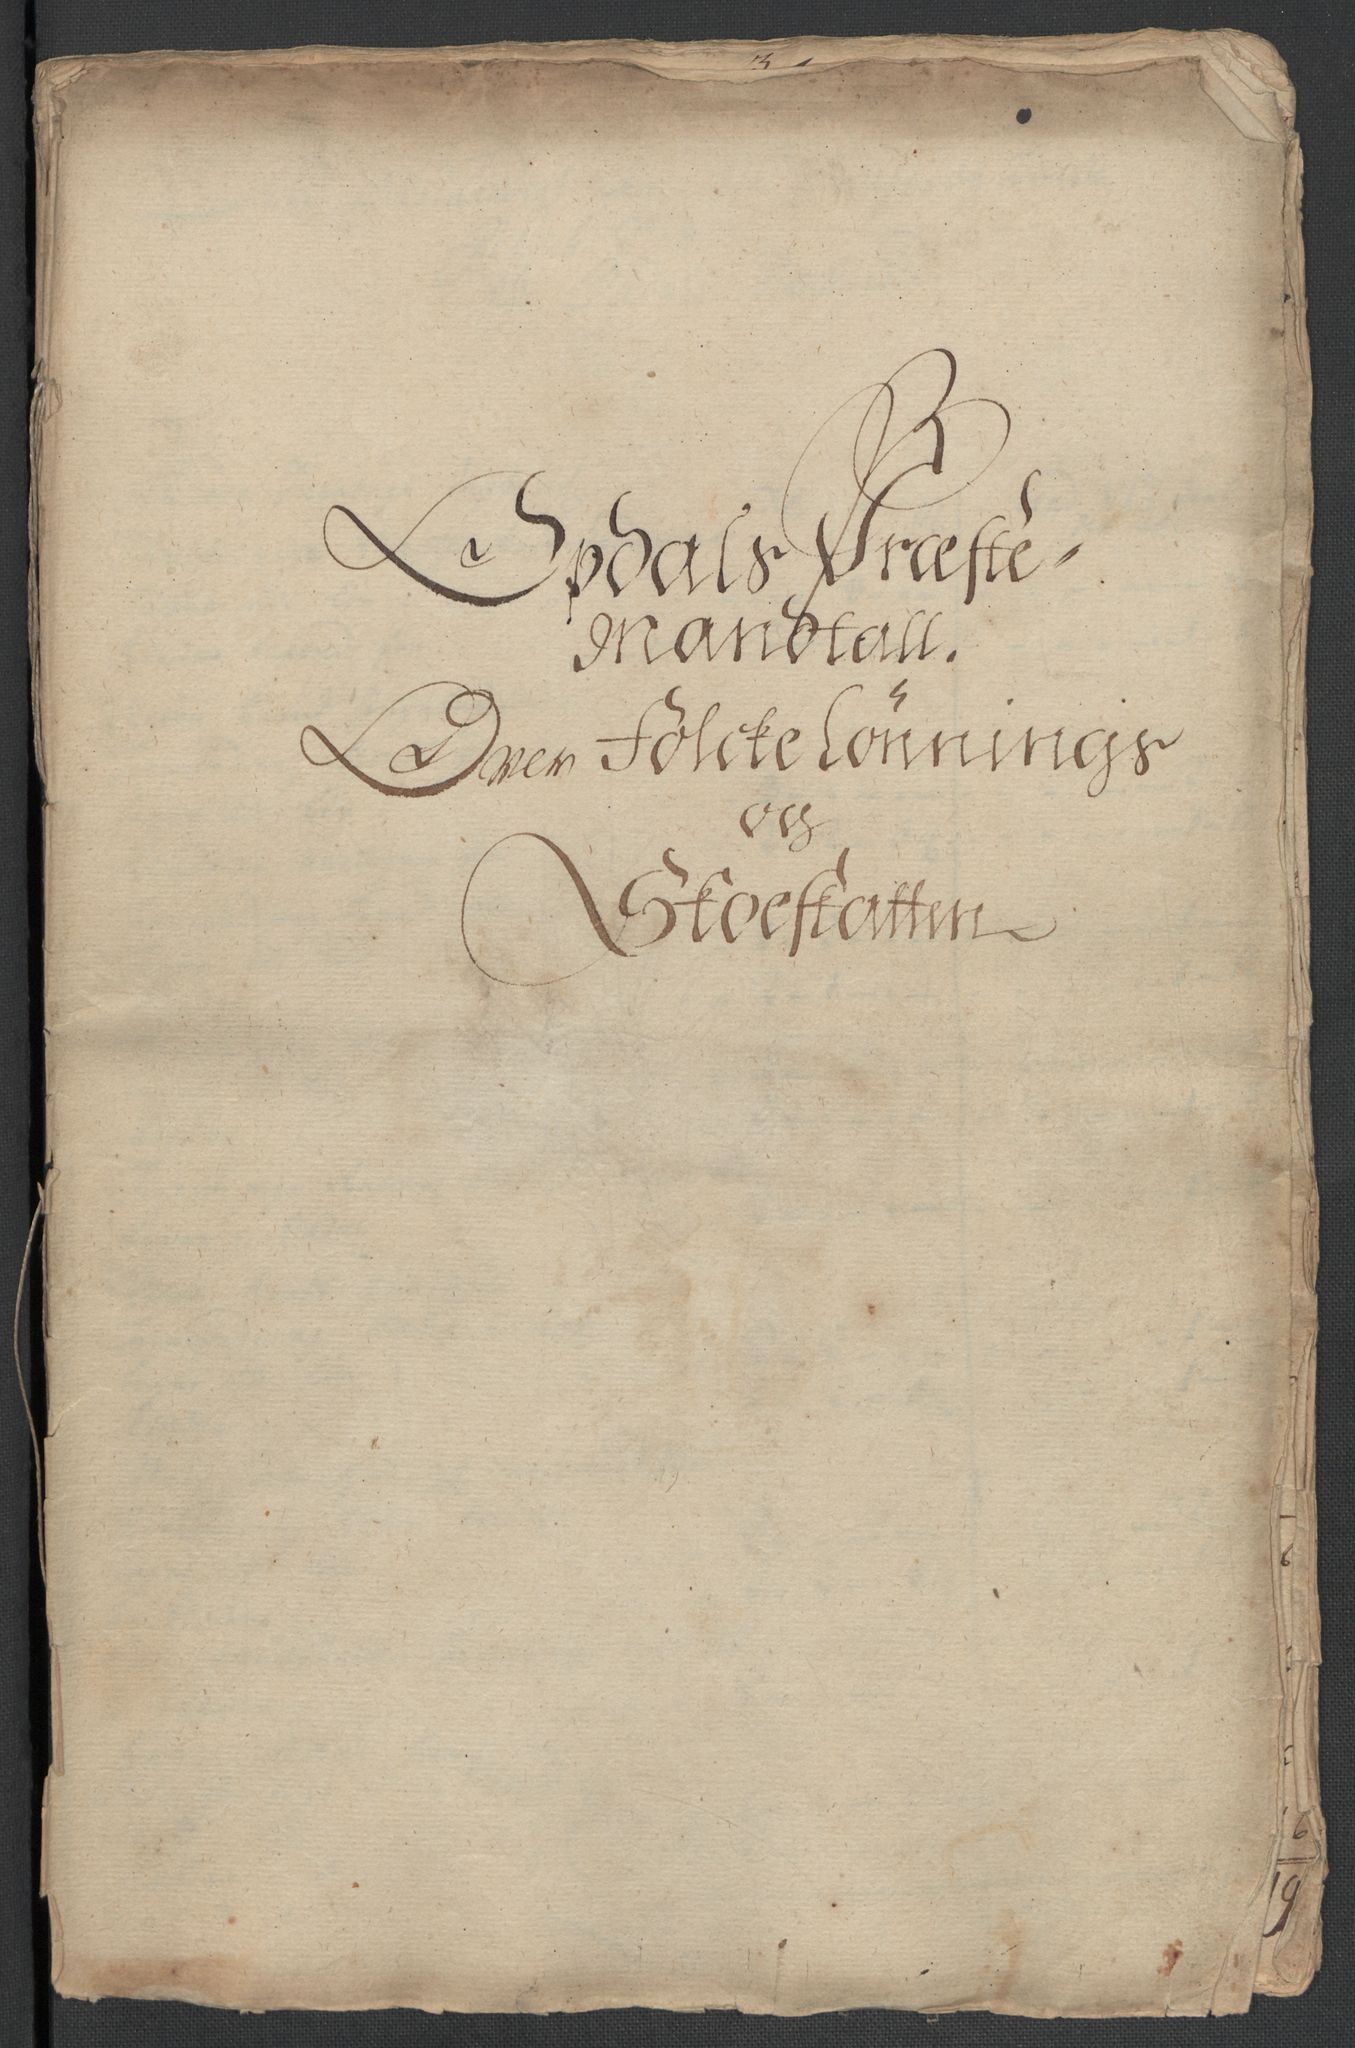 Opdals Præste-
Mandtall.
Over Folcke Lønnings
og
Skoeskatten
6
19